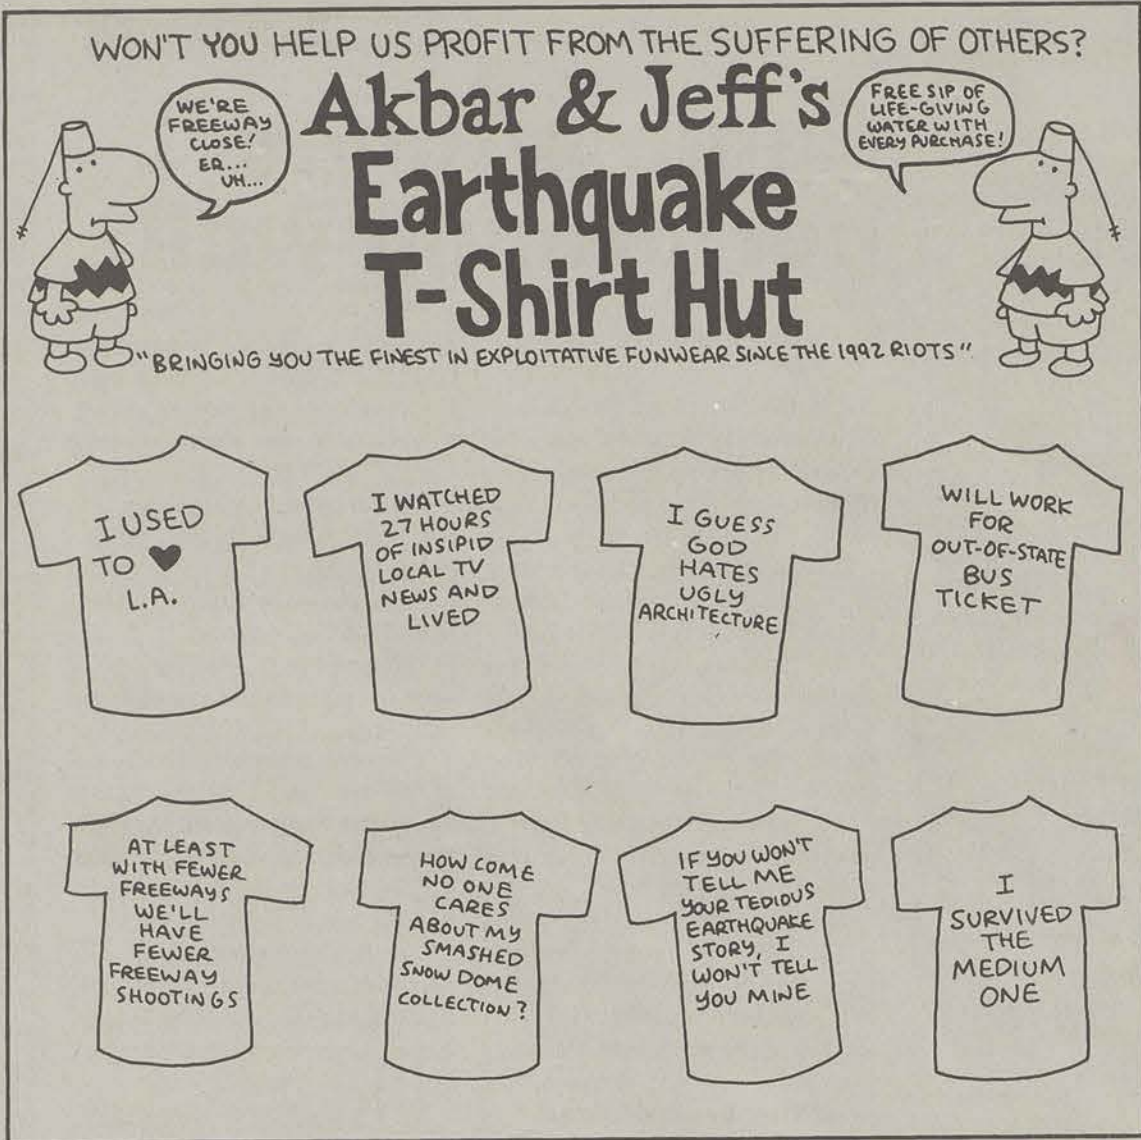 WON'T YOU HELP US PROFIT FROM THE SUFFERING OF OTHERS?
WE'RE
FREEWAY
CLOSE!
ER...
UH...
Akbar & Jeff's
Earthquake
T-Shirt Hut
FREE SIP OF
LIFE-GIVING
WATER WITH
EVERY PURCHASE!
"BRINGING YOU THE FINEST IN EXPLOITATIVE FUNWEAR SINCE THE 1992 RIOTS"
I USED
TO ♥
L.A.
I WATCHED
27 HOURS
OF INSIPID
LOCAL TV
NEWS AND
LIVED
I GUESS
GOD
HATES
UGLY
ARCHITECTURE
WILL WORK
FOR
OUT-OF-STATE
BUS
TICKET
AT LEAST
WITH FEWER
FREEWAYS
WE'LL
HAVE
FEWER
FREEWAY
SHOOTINGS
HOW COME
NO ONE
CARES
ABOUT MY
SMASHED
SNOW DOME
COLLECTION?
IF YOU WON'T
TELL ME
YOUR TEDIOUS
EARTHQUAKE
STORY, I
WON'T TELL
YOU MINE
I
SURVIVED
THE
MEDIUM
ONE